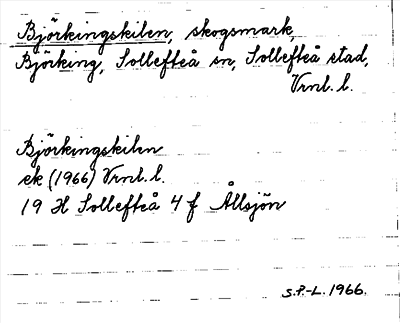 Björkingskilen, skogsmark,
Björking, Sollefteå sn, Sollefteå stad,
Vrnl. l.
Björkingskilen
ek (1966) Vrnl. l.
19 H Sollefteå 4 f Ållsjön
S.P.-L. 1966.